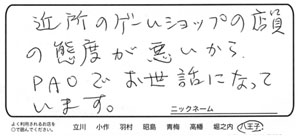 近所のゲームショップの店員
の態度が悪いから
PAOでお世話になって
います。
ニックネーム
よく利用されるお店を
○で囲んでください。 立川 小作 羽村 昭島 青梅 高幡 堀之内 八王子